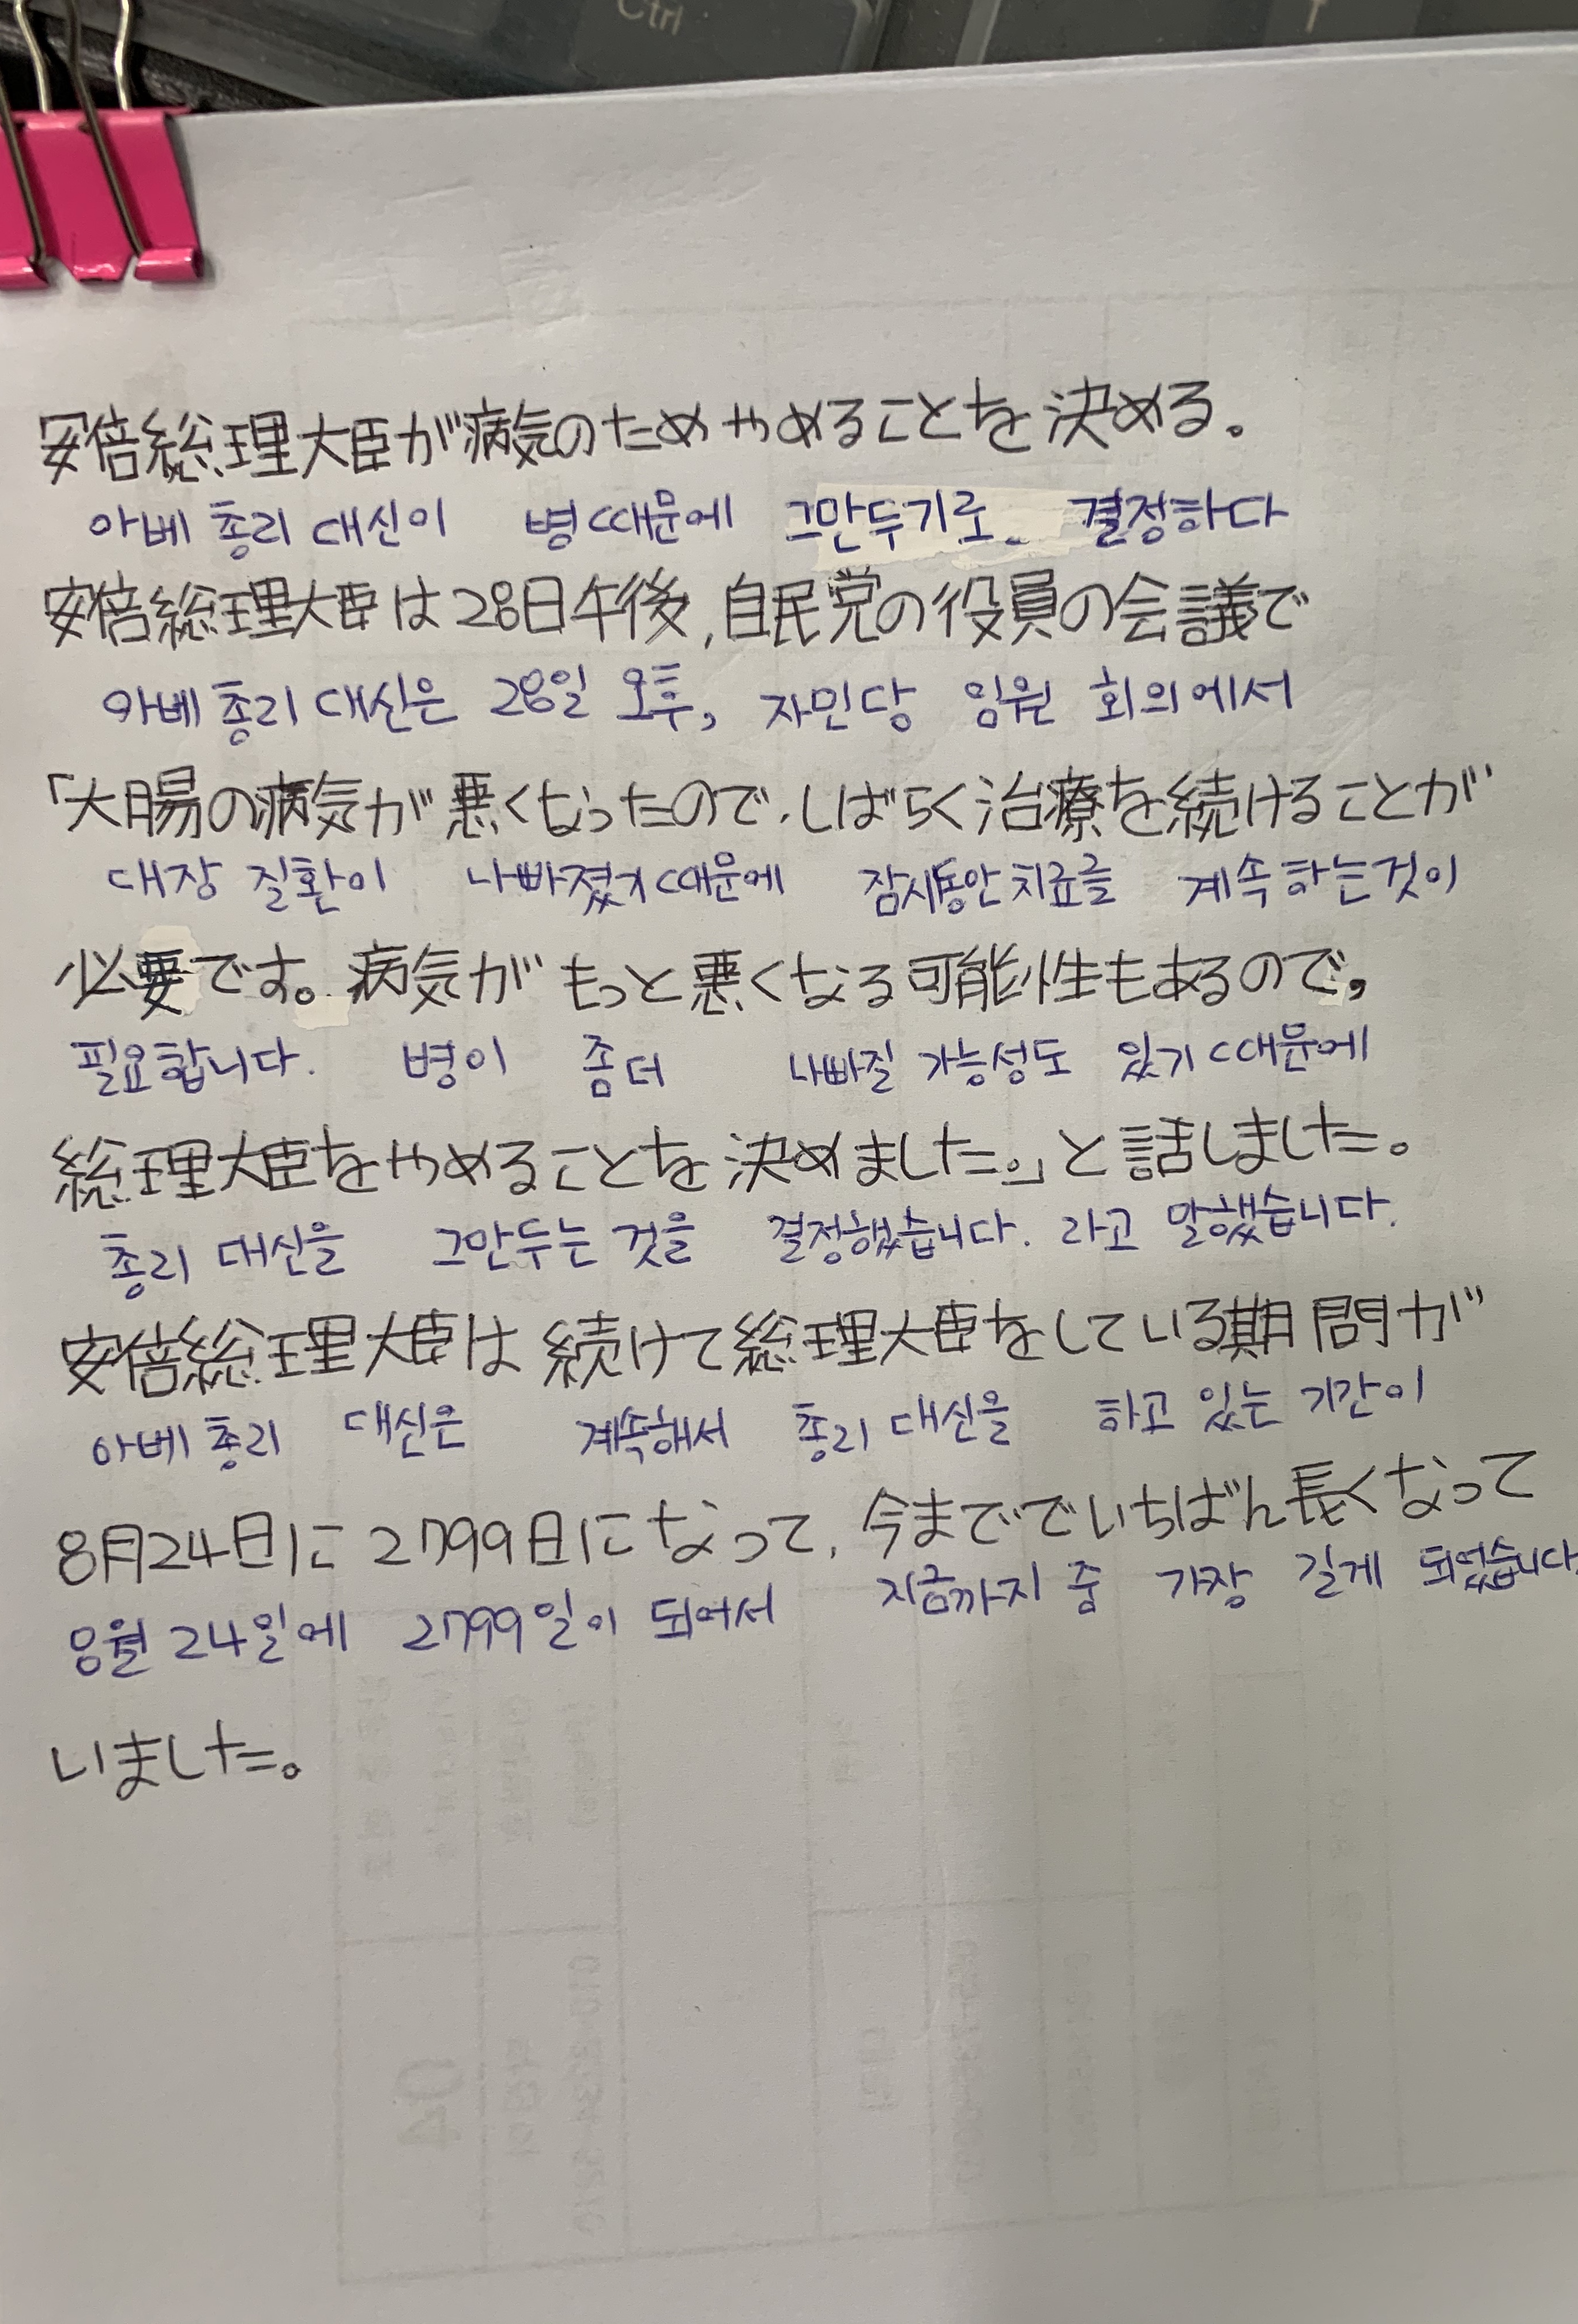 Ctrl
安倍総理大臣が病気のためやめることを決める。
아베 총리 대신이 병때문에 그만두기로 결정하다
安倍総理大臣は28日午後,自民党の役員の会議で
아베 총리 대신은 28일 오후, 자민당 임원 회의에서
「大腸の病気が悪くなったので、しばらく治療を続けることが
대장 질환이 나빠졌기때문에 잠시동안 치료를 계속하는것이
必要です。病気がもっと悪くなる可能性もあるので,
필요합니다. 병이 좀더 나빠질 가능성도 있기때문에
総理大臣をやめることを決めました。」と話しました。
총리 대신을 그만두는 것을 결정했습니다. 라고 말했습니다.
安倍総理大臣は続けて総理大臣をしている期間が
아베 총리 대신은 계속해서 총리 대신을 하고 있는 기간이
8月24日に2799日になって、今まででいちばん長くなって
8월 24일에 2799일이 되어서 지금까지 중 가장 길게 되었습니다.
いました。